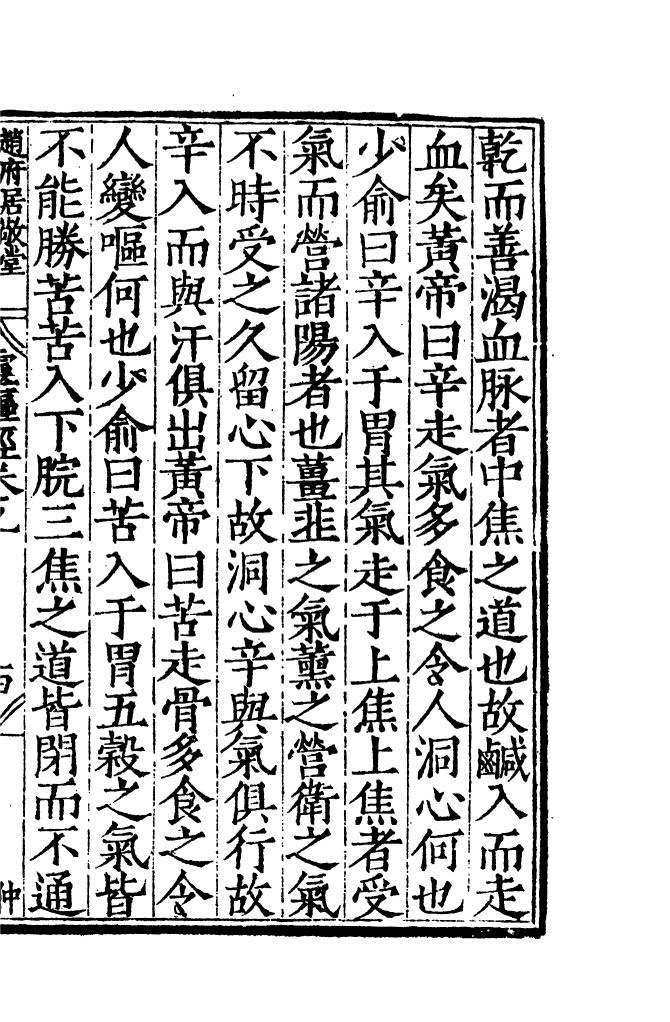 乾而善渴血脉者中焦之道也故鹹入而走
血矣黃帝曰辛走氣多食之令人洞心何也
少俞曰辛入于胃其氣走于上焦上焦者受
氣而營諸陽者也薑韭之氣薰之營衛之氣
不時受之久留心下故洞心辛與氣俱行故
辛入而與汗俱出黃帝曰苦走骨多食之令
人變嘔何也少俞曰苦入于胃五穀之氣皆
不能勝苦苦入下脘三焦之道皆閉而不通
趙府居敬堂
靈樞經卷之